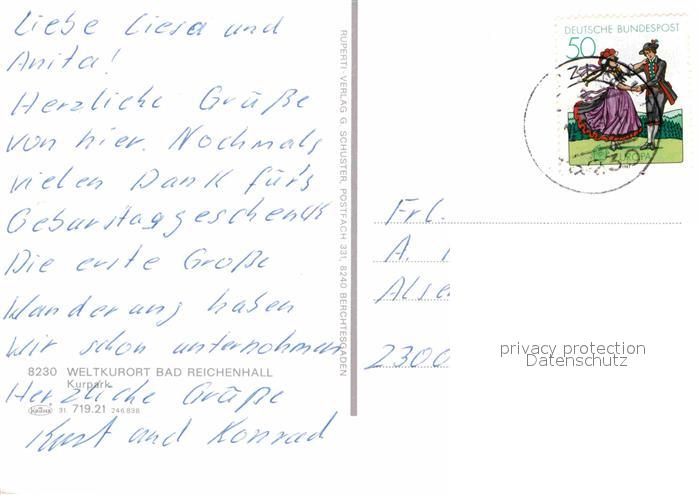 Liebe Liesa und
Anita!
Herzliche Grüße
von hier. Nochmals
vielen Dank für's
Geburstaggeschenk
Die erste Große
Wanderung haben
wir schon unternohmen
8230 WELTKURORT BAD REICHENHALL
Kurpark
Herzliche Grüße
31. 719.21 246 838
Kurt und Konrad
RUPERTI-VERLAG G. SCHUSTER, POSTFACH 331, 8240 BERCHTESGADEN
DEUTSCHE BUNDESPOST
50
Frl.
A.
Alse
2300
privacy protection
Datenschutz